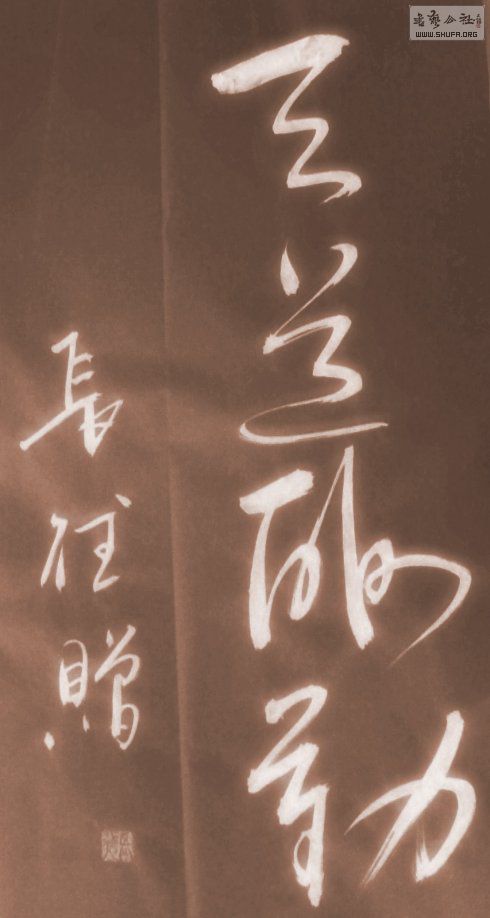 天道酬勤
長征贈
書艺公社
WWW.SHUFA.ORG